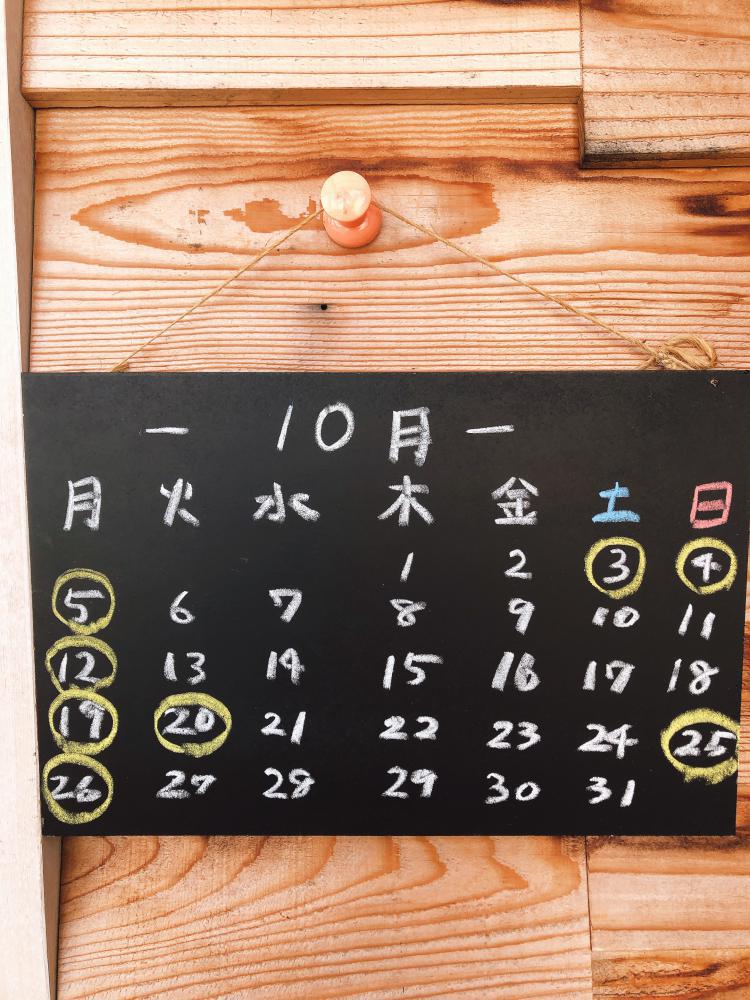 － 10月 －
月 火 水 木 金 土 日
1 2 3 4
5 6 7 8 9 10 11
12 13 14 15 16 17 18
19 20 21 22 23 24 25
26 27 28 29 30 31